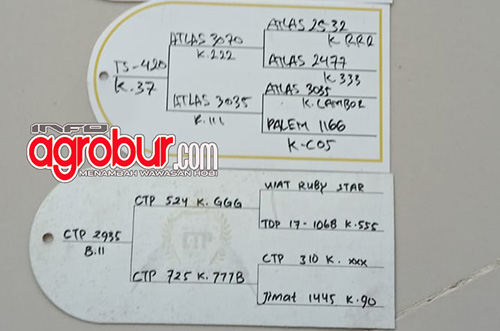 ATLAS 2532
K RRR
ATLAS 3070
K.222
ATLAS 2477
K 333
TS-420
K.37
ATLAS 3035
K.LAMBOR
ATLAS 3035
K.111
PALEM 1166
K-C05
INFO
agrobur.com
MENAMBAH WAWASAN HOBI
WAT RUBY STAR
CTP 524 K. GGG
TOP 17-106B K.555
CTP 2935
B.11
CTP
CTP 310 K. xxx
CTP 725 K.777B
Jimat 1445 K.90